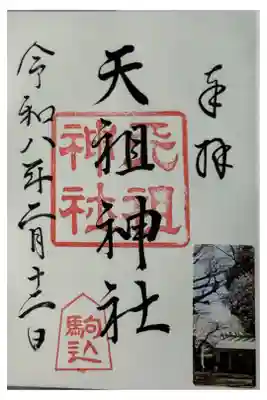 奉拝
天祖神社
天祖
神社
駒込
令和八年二月十二日